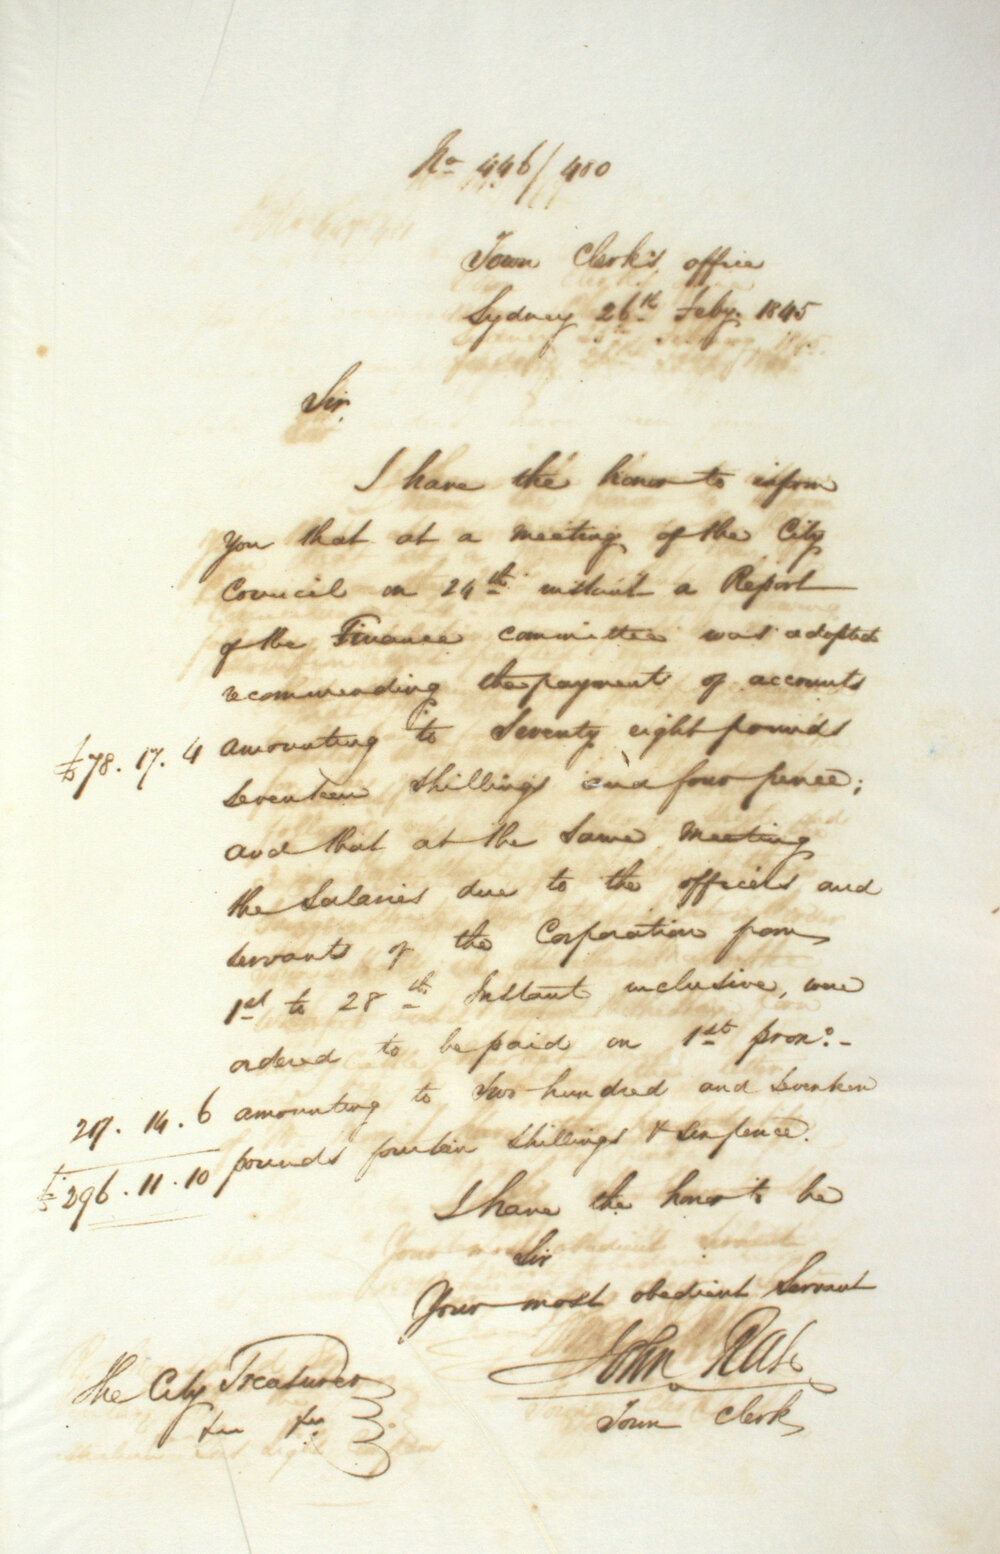 No 446/400
Town Clerk's office
Sydney 26th Feby. 1845
Sir,
I have the honor to inform
you that at a meeting of the City
Council on 24th instant a Report
of the Finance Committee was adopted
recommending the payment of accounts
£78. 17. 4 amounting to Seventy eight pounds
seventeen shillings and four pence;
and that at the Same Meeting
the Salaries due to the officers and
servants of the Corporation from
1st to 28th Instant inclusive, were
ordered to be paid on 1st proxo. -
217. 14. 6 amounting to Two hundred and Seventeen
£296. 11. 10 pounds fourteen shillings & sixpence.
I have the honor to be
Sir
Your most obedient Servant
John Rae
Town Clerk
The City Treasurer